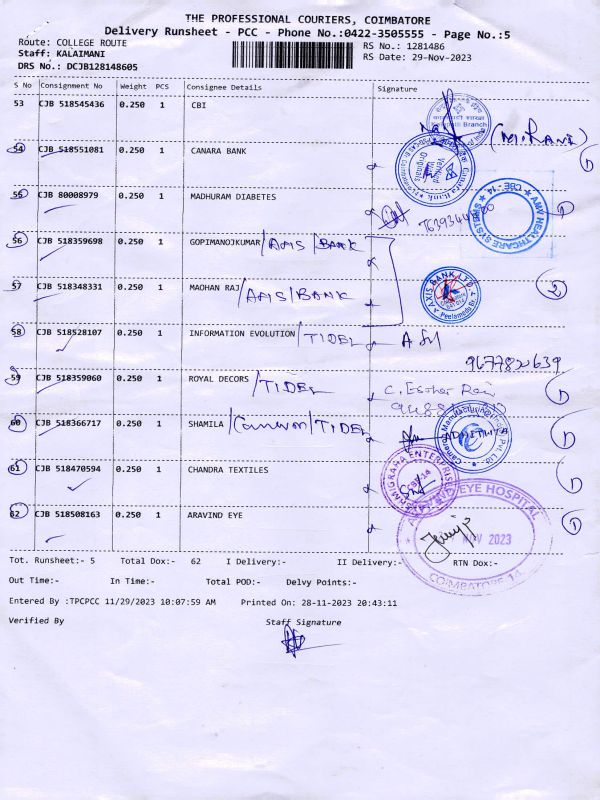 THE PROFESSIONAL COURIERS, COIMBATORE
Delivery Runsheet - PCC - Phone No.:0422-3505555 - Page No.:5
Route: COLLEGE ROUTE RS No.: 1281486
Staff: KALAIMANI RS Date: 29-Nov-2023
DRS No.: DCJB128148605
S No Consignment No Weight PCS Consignee Details Signature
53 CJB 518545436 0.250 1 CBI
54 CJB 518551081 0.250 1 CANARA BANK
55 CJB 80008979 0.250 1 MADHURAM DIABETES
AMV HEALTHCARE SYSTEMS CBE - 14
56 CJB 518359698 0.250 1 GOPIMANOJKUMAR /AXIS/BANK
57 CJB 518348331 0.250 1 MADHAN RAJ /AXIS/BANK AXIS BANK LTD. 2
58 CJB 518528107 0.250 1 INFORMATION EVOLUTION /TIDEL
9677822639
59 CJB 518359060 0.250 1 ROYAL DECORS /TIDEL C. Esther Rani
60 CJB 518366717 0.250 1 SHAMILA /Cameron/TIDEL
61 CJB 518470594 0.250 1 CHANDRA TEXTILES
62 CJB 518508163 0.250 1 ARAVIND EYE
EYE HOSPITAL
NOV 2023
COIMBATORE 14
Tot. Runsheet:- 5 Total Dox:- 62 I Delivery:- II Delivery:- RTN Dox:-
Out Time:- In Time:- Total POD:- Delvy Points:-
Entered By :TPCPCC 11/29/2023 10:07:59 AM Printed On: 28-11-2023 20:43:11
Verified By Staff Signature